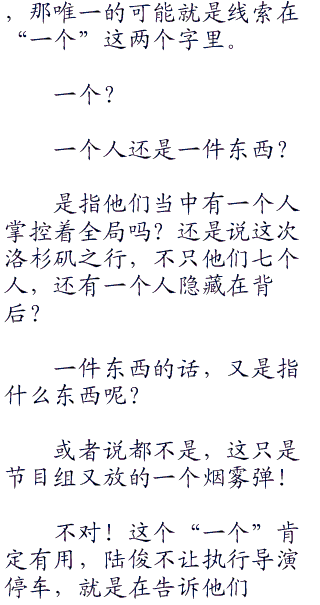 ，那唯一的可能就是线索在
“一个”这两个字里。
一个？
一个人还是一件东西？
是指他们当中有一个人
掌控着全局吗？还是说这次
洛杉矶之行，不只他们七个
人，还有一个人隐藏在背
后？
一件东西的话，又是指
什么东西呢？
或者说都不是，这只是
节目组又放的一个烟雾弹！
不对！这个“一个”肯
定有用，陆俊不让执行导演
停车，就是在告诉他们